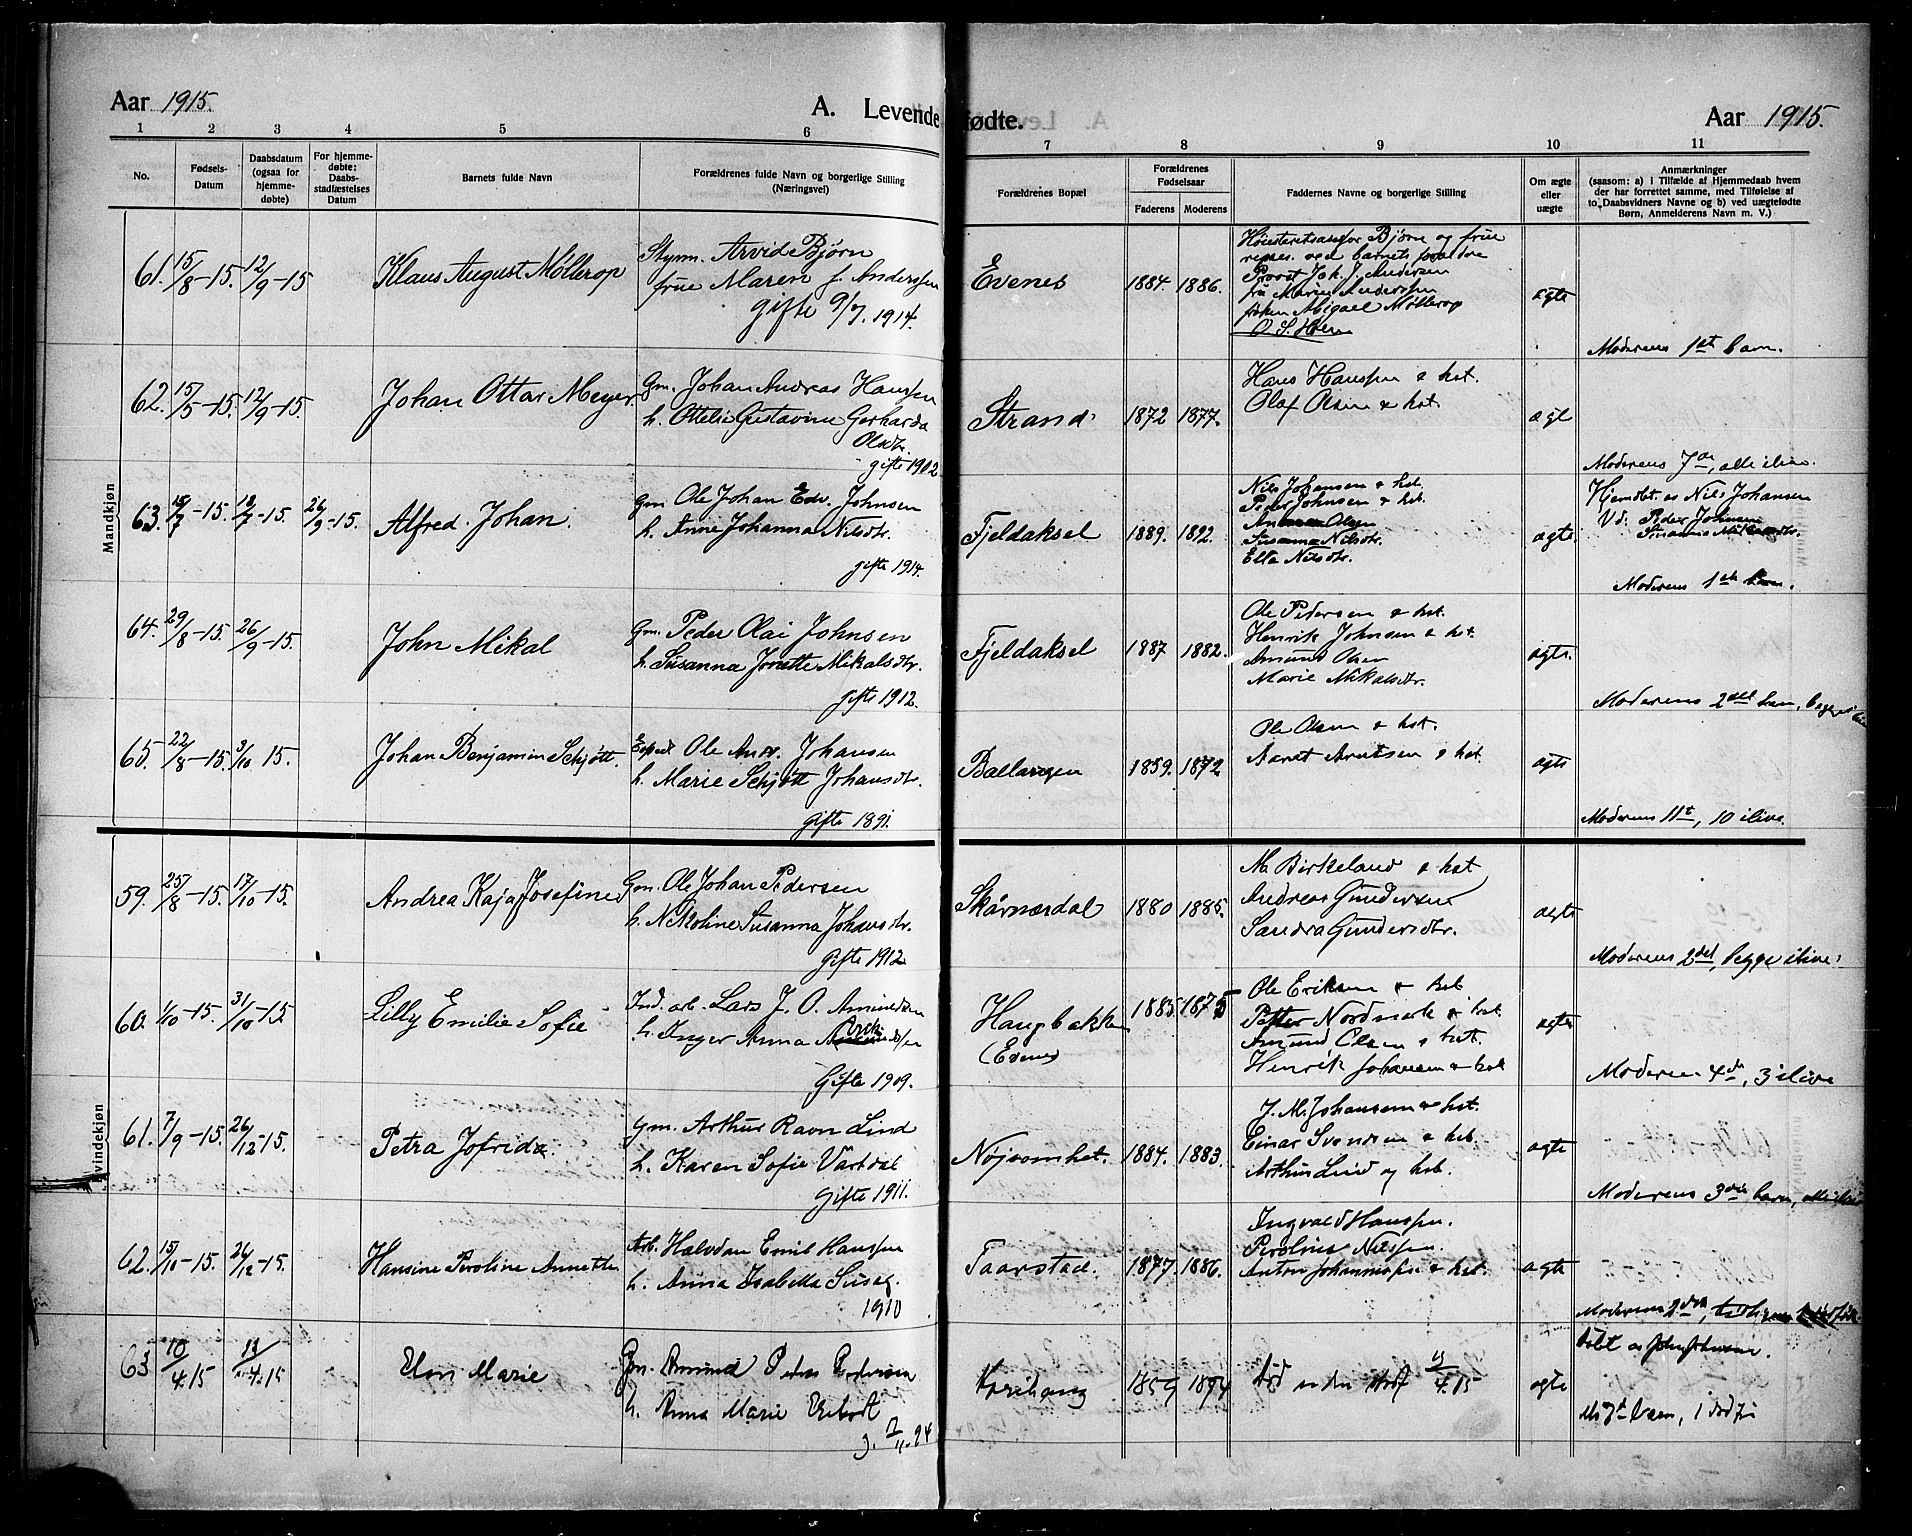 Aar 1915.
A. Levende fødte.
Aar 1915.
1 2 3 4 5 6 7 8 9 10 11
No.
Fødsels-
Datum
Daabsdatum
(ogsaa for
hjemme-
døbte)
For hjemme-
døbte:
Daabs-
stadfæstelses
Datum
Barnets fulde Navn
Forældrenes fulde Navn og borgerlige Stilling
(Næringsvei)
Forældrenes Bopæl
Forældrenes
Fødselsaar
Faderens Moderens
Faddernes Navne og borgerlige Stilling
Om ægte
eller
uægte
Anmærkninger
(saasom: a) i Tilfælde af Hjemmedaab hvem
der har forrettet samme, med Tilføielse af
to Daabsvidners Navne og b) ved uægtefødte
Børn, Anmelderens Navn m. V.)
Mandkjøn
61. 15/8-15. 12/9-15 Klaus August Møllerop
Styrm. Arvid Bjørn
frue Maren f. Anderssen
gifte 9/7. 1914.
Evenes 1884. 1886.
Høiesteretsassessor Bjørn og frue
repres. ved barnets forældre
Provst Joh. J. Andersen
fru Marie Anderssen
frøken Abigael Møllerop
O. S. Holm
ægte
Moderens 1ste barn.
62. 15/5-15. 12/9-15. Johan Ottar Meyer.
Gm. Johan Andreas Hanssen
h. Ottelie Gustavine Gerharda
Olsdtr.
gifte 1902
Strand 1872 1877.
Hans Hanssen & hst.
Olaf Olsen & hst.
ægt
Moderens 7de, alle ilive.
63. 15/7-15. 18/7-15. 26/9-15. Alfred Johan.
Gm. Ole Johan Edv. Johnsen
h. Anne Johanna Nilsdtr.
gifte 1914.
Fjeldaksel 1889. 1892.
Nils Johansen & hst.
Peder Johnsen & hst.
Olsen
Susanna Nilsdtr.
Ella Nilsdtr.
ægte
Hjemdbt. av Nils Johansen
Vd: Peder Johnsen
Susanna
Moderens 1ste barn.
64. 29/8-15. 26/9-15. John Mikal
Gm. Peder Olai Johnsen
h. Susanna Jonette Mikalsdtr.
gifte 1912.
Fjeldaksel 1887 1882.
Ole Pedersen & hst.
Henrik Johnsen & hst.
Amund Olsen
Marie Mikalsdtr.
ægte.
Moderens 2det barn, begge i live
65. 22/8-15. 3/10 15. Johan Benjamin Schjøtt.
Exped. Ole Andr. Johansen
h. Marie Schjøtt Johansdtr.
gifte 1891.
Ballangen 1859. 1872
Ole Olsen & hst.
Arndt Arntsen & hst.
ægte
Moderens 11t, 10 ilive.
Kvindekjøn
59. 25/8-15 17/10-15. Andrea Kaja Josefine
Gm. Ole Johan Pedersen
h. Nikoline Susanna Johansdtr.
Gifte 1912
Skårnærdal 1880 1885.
M. Birkeland & hst
Andreas Gundersen
Sandra Gundersdtr.
ægte
Moderens 2det, begge ilive.
60. 1/10-15. 31/10-15. Lilly Emilie Sofie
Ind. arb. Lars J. O. Amundsen
h. Inger Anna
Gifte 1909.
Haugbakken
(Evenes)
1885 1875
Ole Eriksen & hst
Petter Nordmark & hst.
Amund Olsen & hst.
Henrik Johansen & hst
ægte
Moderens 4de, 3 ilive
61. 7/9-15. 26/12-15. Petra Jofrida.
Gm. Arthur Ravn Lind
h. Karen Sofie Vartdal
Gifte 1911.
Nøjsomhet. 1884. 1883.
J. M. Johansen & hst.
Einar Svendsen & hst.
Arthur Lind og hst.
ægte
Moderens 3die barn, alle ilive
62. 15/10-15. 26/12-15. Hansine Peroline Annette
Arb. Halvdan Emil Hanssen
h. Anna Isabella
1910
Taarstad. 1877. 1886.
Ingvald Hanssen.
Perolius Nilssen.
Anton Johannessen & hst.
ægte
Moderens 2det,
63 10/4.15 13/4.15 Elen Marie
Gm. Amund Peder Pedersen
h. Anna Marie
g. 17/11.94
1859 1874
Død
ægte
M. 7t barn, 1 død før